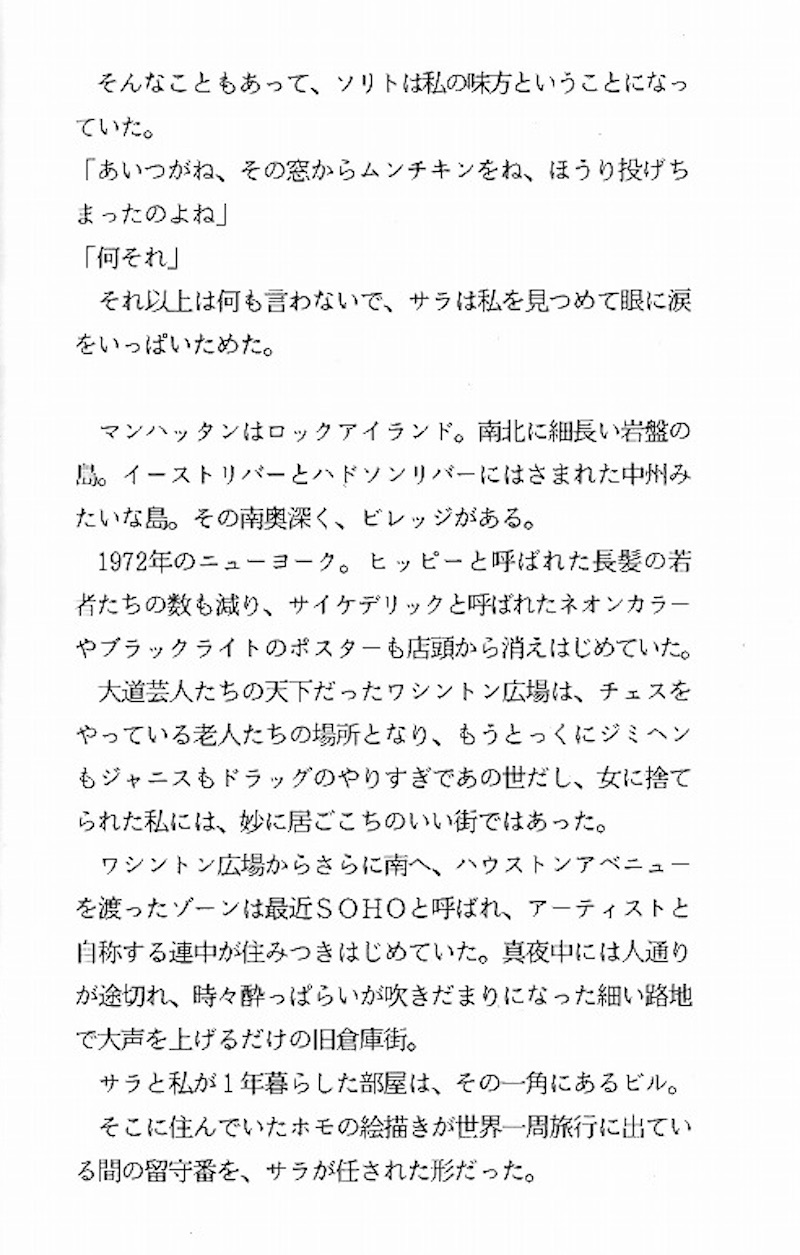 そんなこともあって、ソリトは私の味方ということになっ
ていた。
「あいつがね、その窓からムンチキンをね、ほうり投げち
まったのよね」
「何それ」
それ以上は何も言わないで、サラは私を見つめて眼に涙
をいっぱいためた。
マンハッタンはロックアイランド。南北に細長い岩盤の
島。イーストリバーとハドソンリバーにはさまれた中州み
たいな島。その南奥深く、ビレッジがある。
1972年のニューヨーク。ヒッピーと呼ばれた長髪の若
者たちの数も減り、サイケデリックと呼ばれたネオンカラー
やブラックライトのポスターも店頭から消えはじめていた。
大道芸人たちの天下だったワシントン広場は、チェスを
やっている老人たちの場所となり、もうとっくにジミヘン
もジャニスもドラッグのやりすぎであの世だし、女に捨て
られた私には、妙に居ごこちのいい街ではあった。
ワシントン広場からさらに南へ、ハウストンアベニュー
を渡ったゾーンは最近SOHOと呼ばれ、アーティストと
自称する連中が住みつきはじめていた。真夜中には人通り
が途切れ、時々酔っぱらいが吹きだまりになった細い路地
で大声を上げるだけの旧倉庫街。
サラと私が1年暮らした部屋は、その一角にあるビル。
そこに住んでいたホモの絵描きが世界一周旅行に出てい
る間の留守番を、サラが任された形だった。